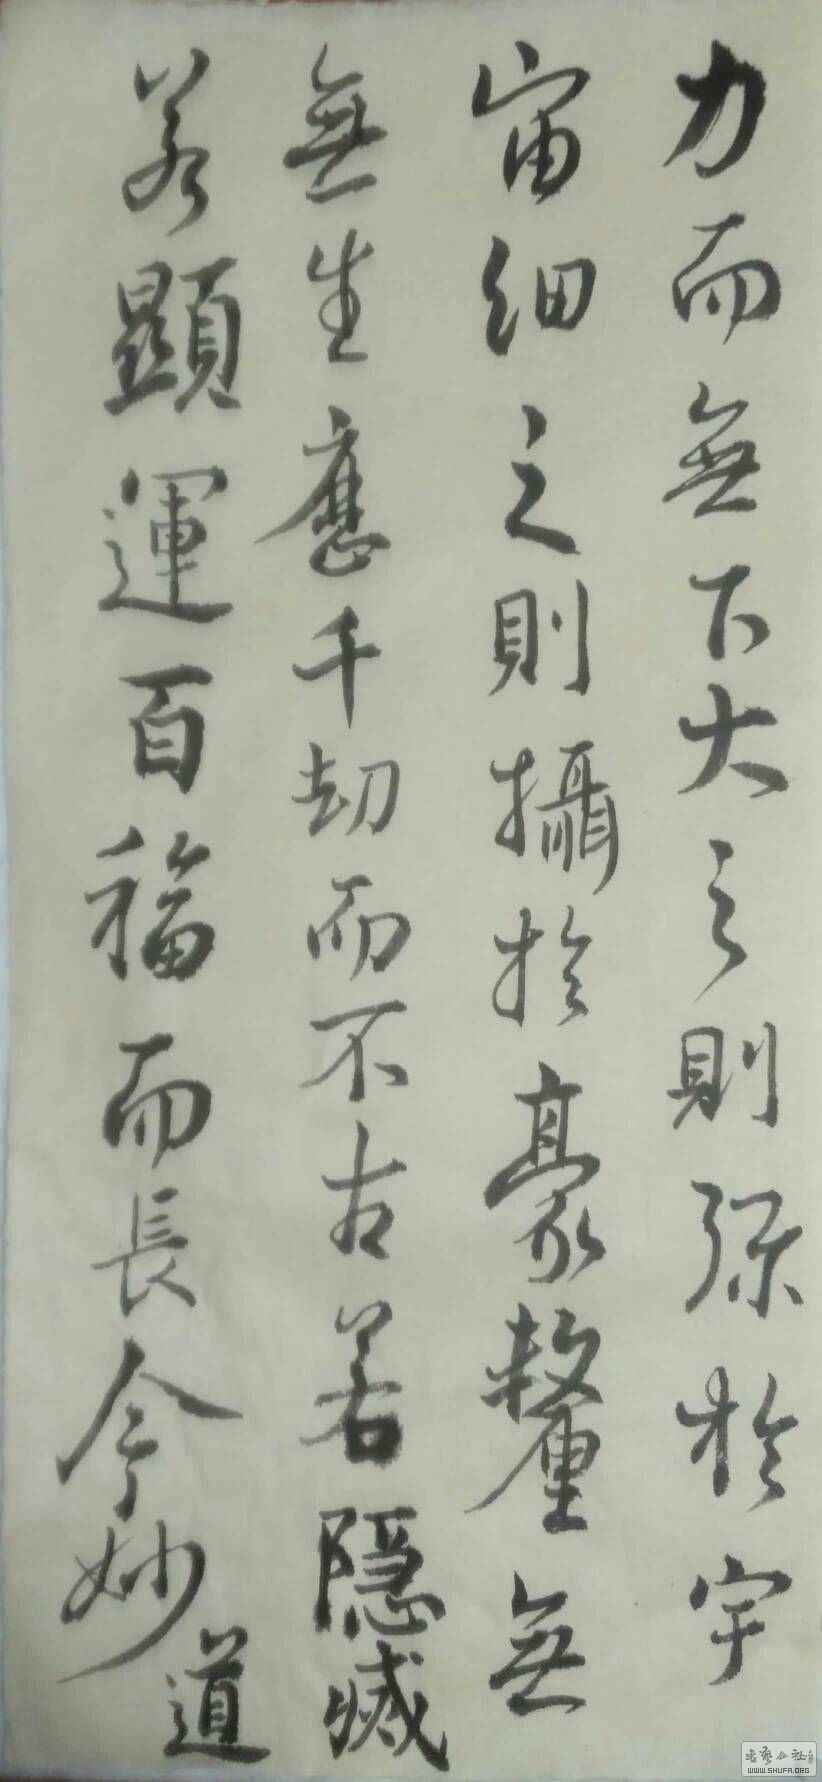 力而無下大之則弥於宇
宙細之則攝於豪釐無
無生歷千劫而不古若隱滅
若顯運百福而長今妙道
書藝公社
WWW.SHUFA.ORG